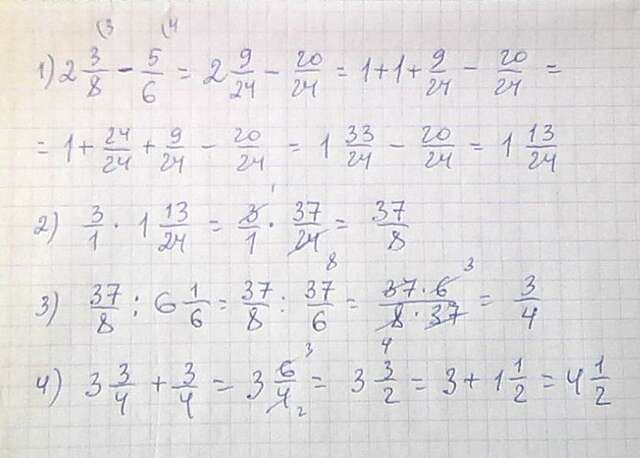 (3 (4
1) 2 3/8 - 5/6 = 2 9/24 - 20/24 = 1+1+ 9/24 - 20/24 =
= 1 + 24/24 + 9/24 - 20/24 = 1 33/24 - 20/24 = 1 13/24
2) 3/1 · 1 13/24 = 3/1 · 37/24 = 37/8
1
8
3) 37/8 : 6 1/6 = 37/8 : 37/6 = 37·6/8·37 = 3/4
3
4
4) 3 3/4 + 3/4 = 3 6/4 = 3 3/2 = 3 + 1 1/2 = 4 1/2
3
2